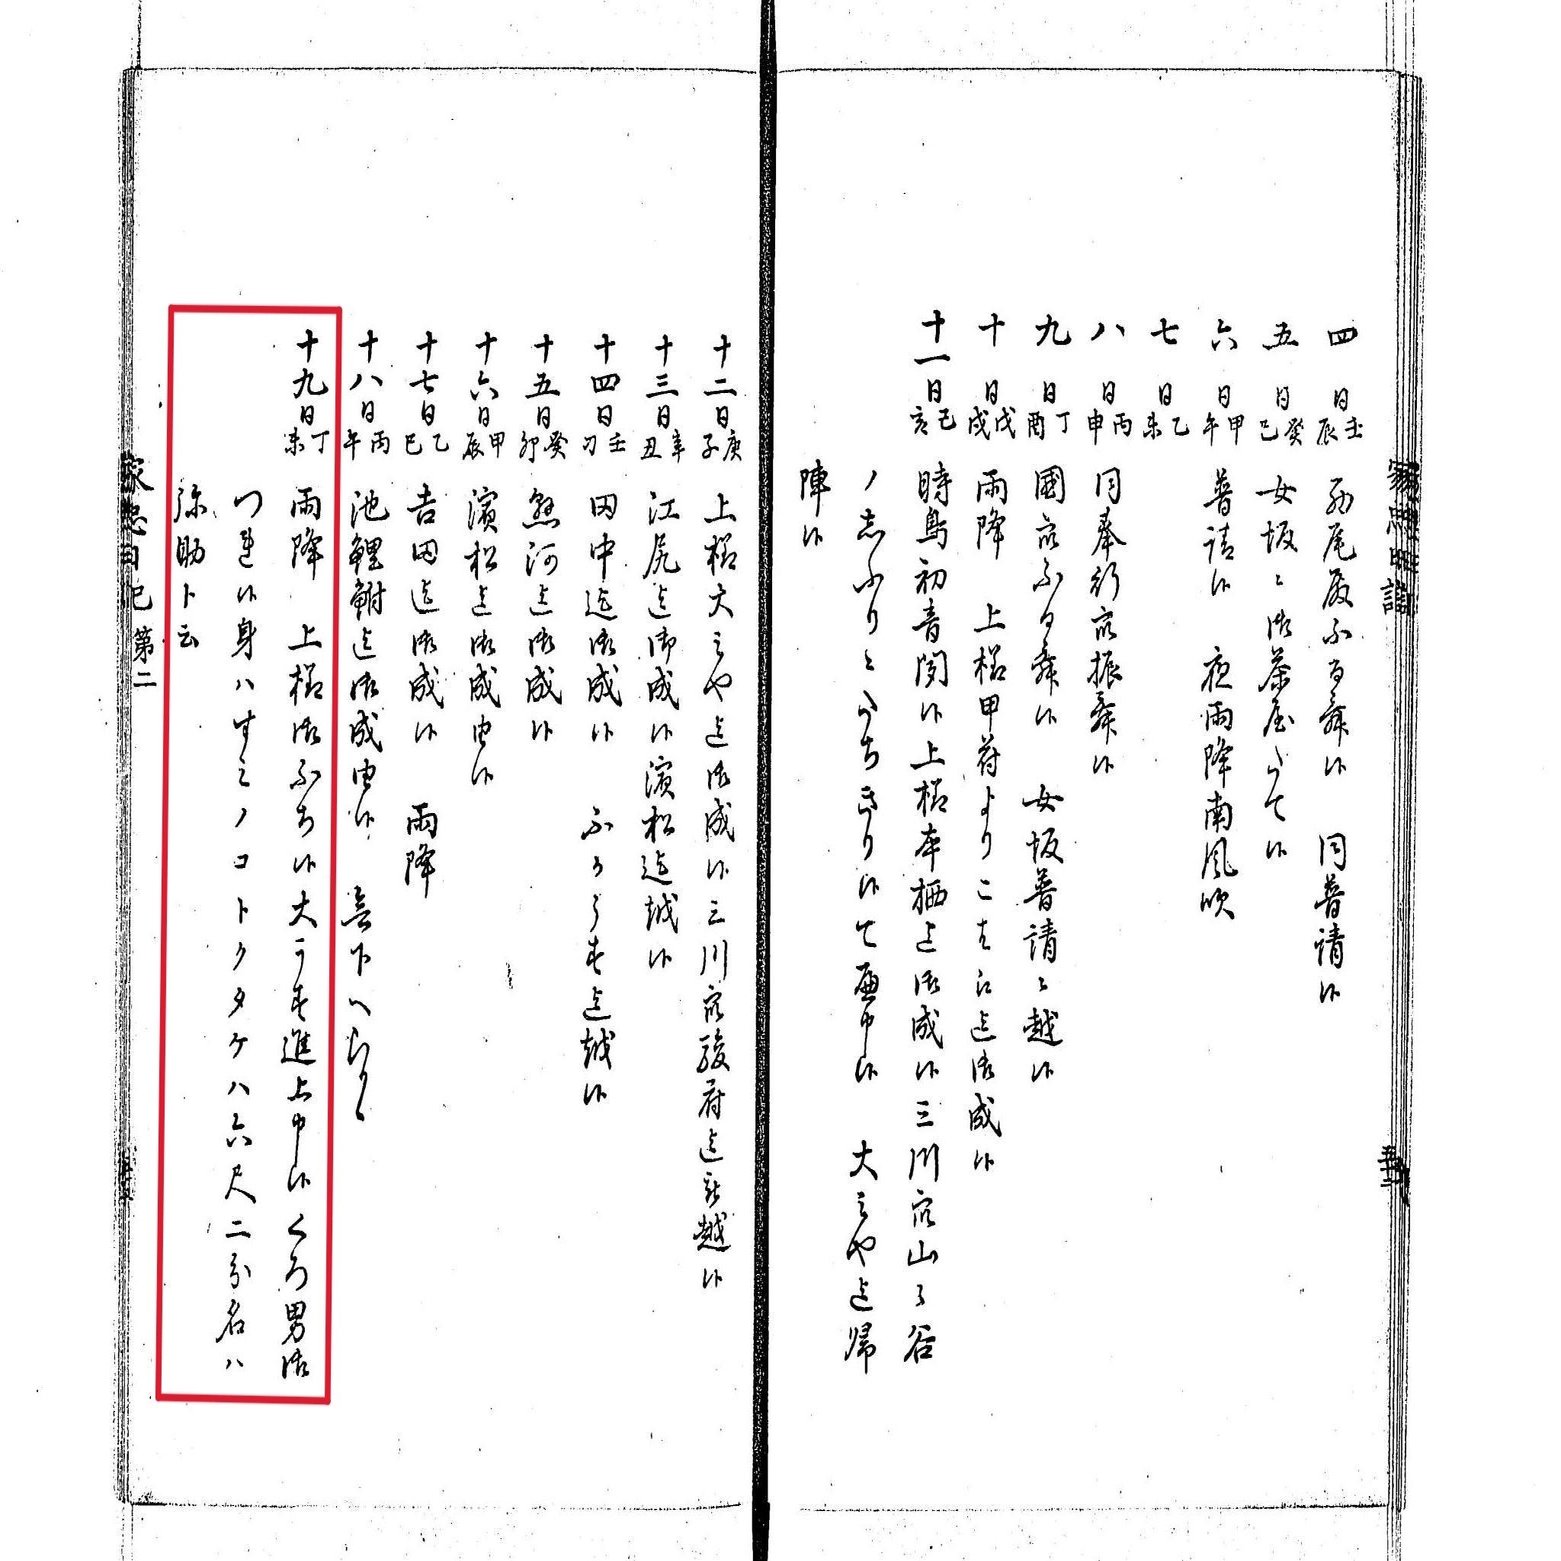 四日壬辰 殿ふる舞候 同普請候
五日癸巳 女坂ニ御茶屋たて候
六日甲午 普請候 夜雨降南風吹
七日乙未
八日丙申 同奉行衆振舞候
九日丁酉 國衆ふる舞候 女坂普請ニ越候
十日戊戌 雨降 上様甲府より 迄御成候
十一日己亥 時鳥初音聞候上様本栖迄御成候三川衆山々谷
ノ 候て 申候 大ミや迄帰
陣候
十二日庚子 上様大ミや迄御成候三川衆駿府迄被越候
十三日辛丑 江尻迄御成候濱松迄越候
十四日壬刁 田中迄御成候 迄越候
十五日癸卯 懸河迄御成候
十六日甲辰 濱松迄御成由候
十七日乙巳 吉田迄御成候 雨降
十八日丙午 池鯉鮒迄御成由候
十九日丁未 雨降 上様御ふち候大うす進上申候くろ男御
つれ候身ハすミノコトクタケハ六尺二分名ハ
弥助ト云
家忠日記 第二